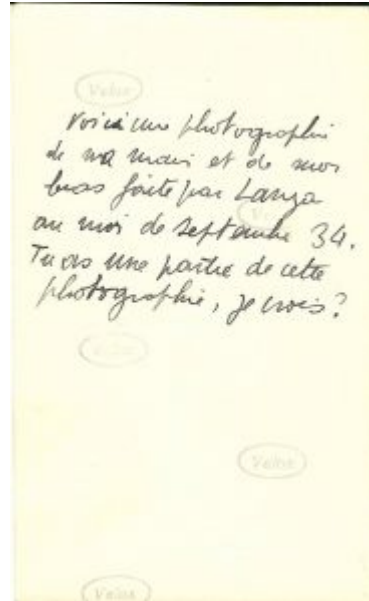 Velox
Voici une photographie
de ma main et de mon
bras faite par Lanza
au moi de septembre 34.
Velox
Tu as une partie de cette
photographie, je crois?
Velox
Velox
Velox